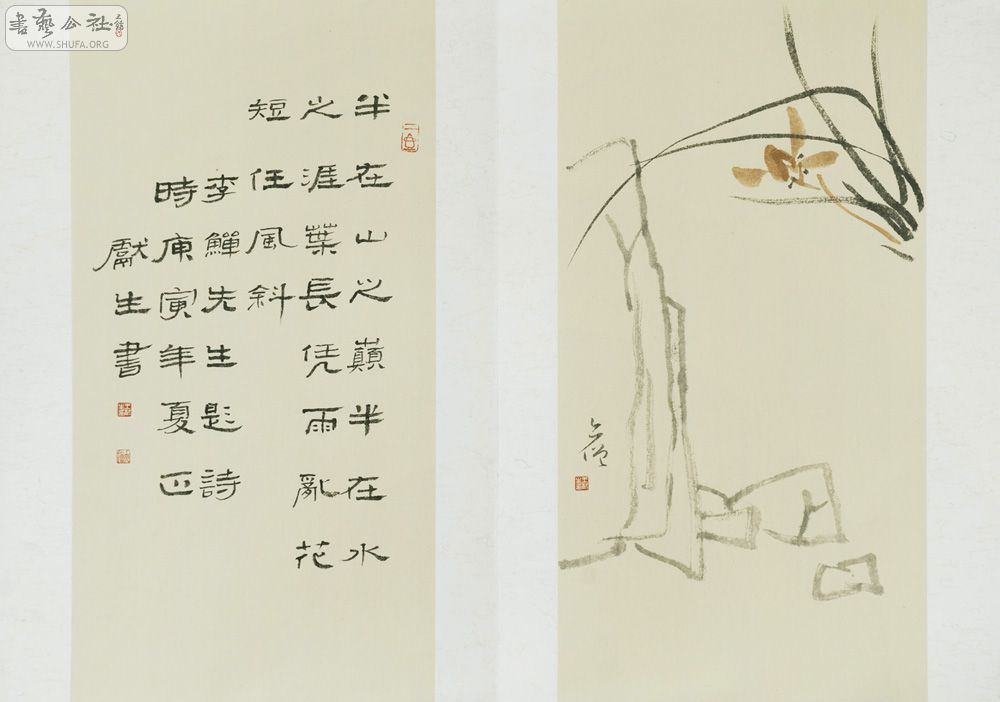 書藝公社
WWW.SHUFA.ORG
半在山之巔半在水
之涯葉長凭雨亂花
短任風斜
李鱓先生題詩
時庚寅年夏正
獻生書